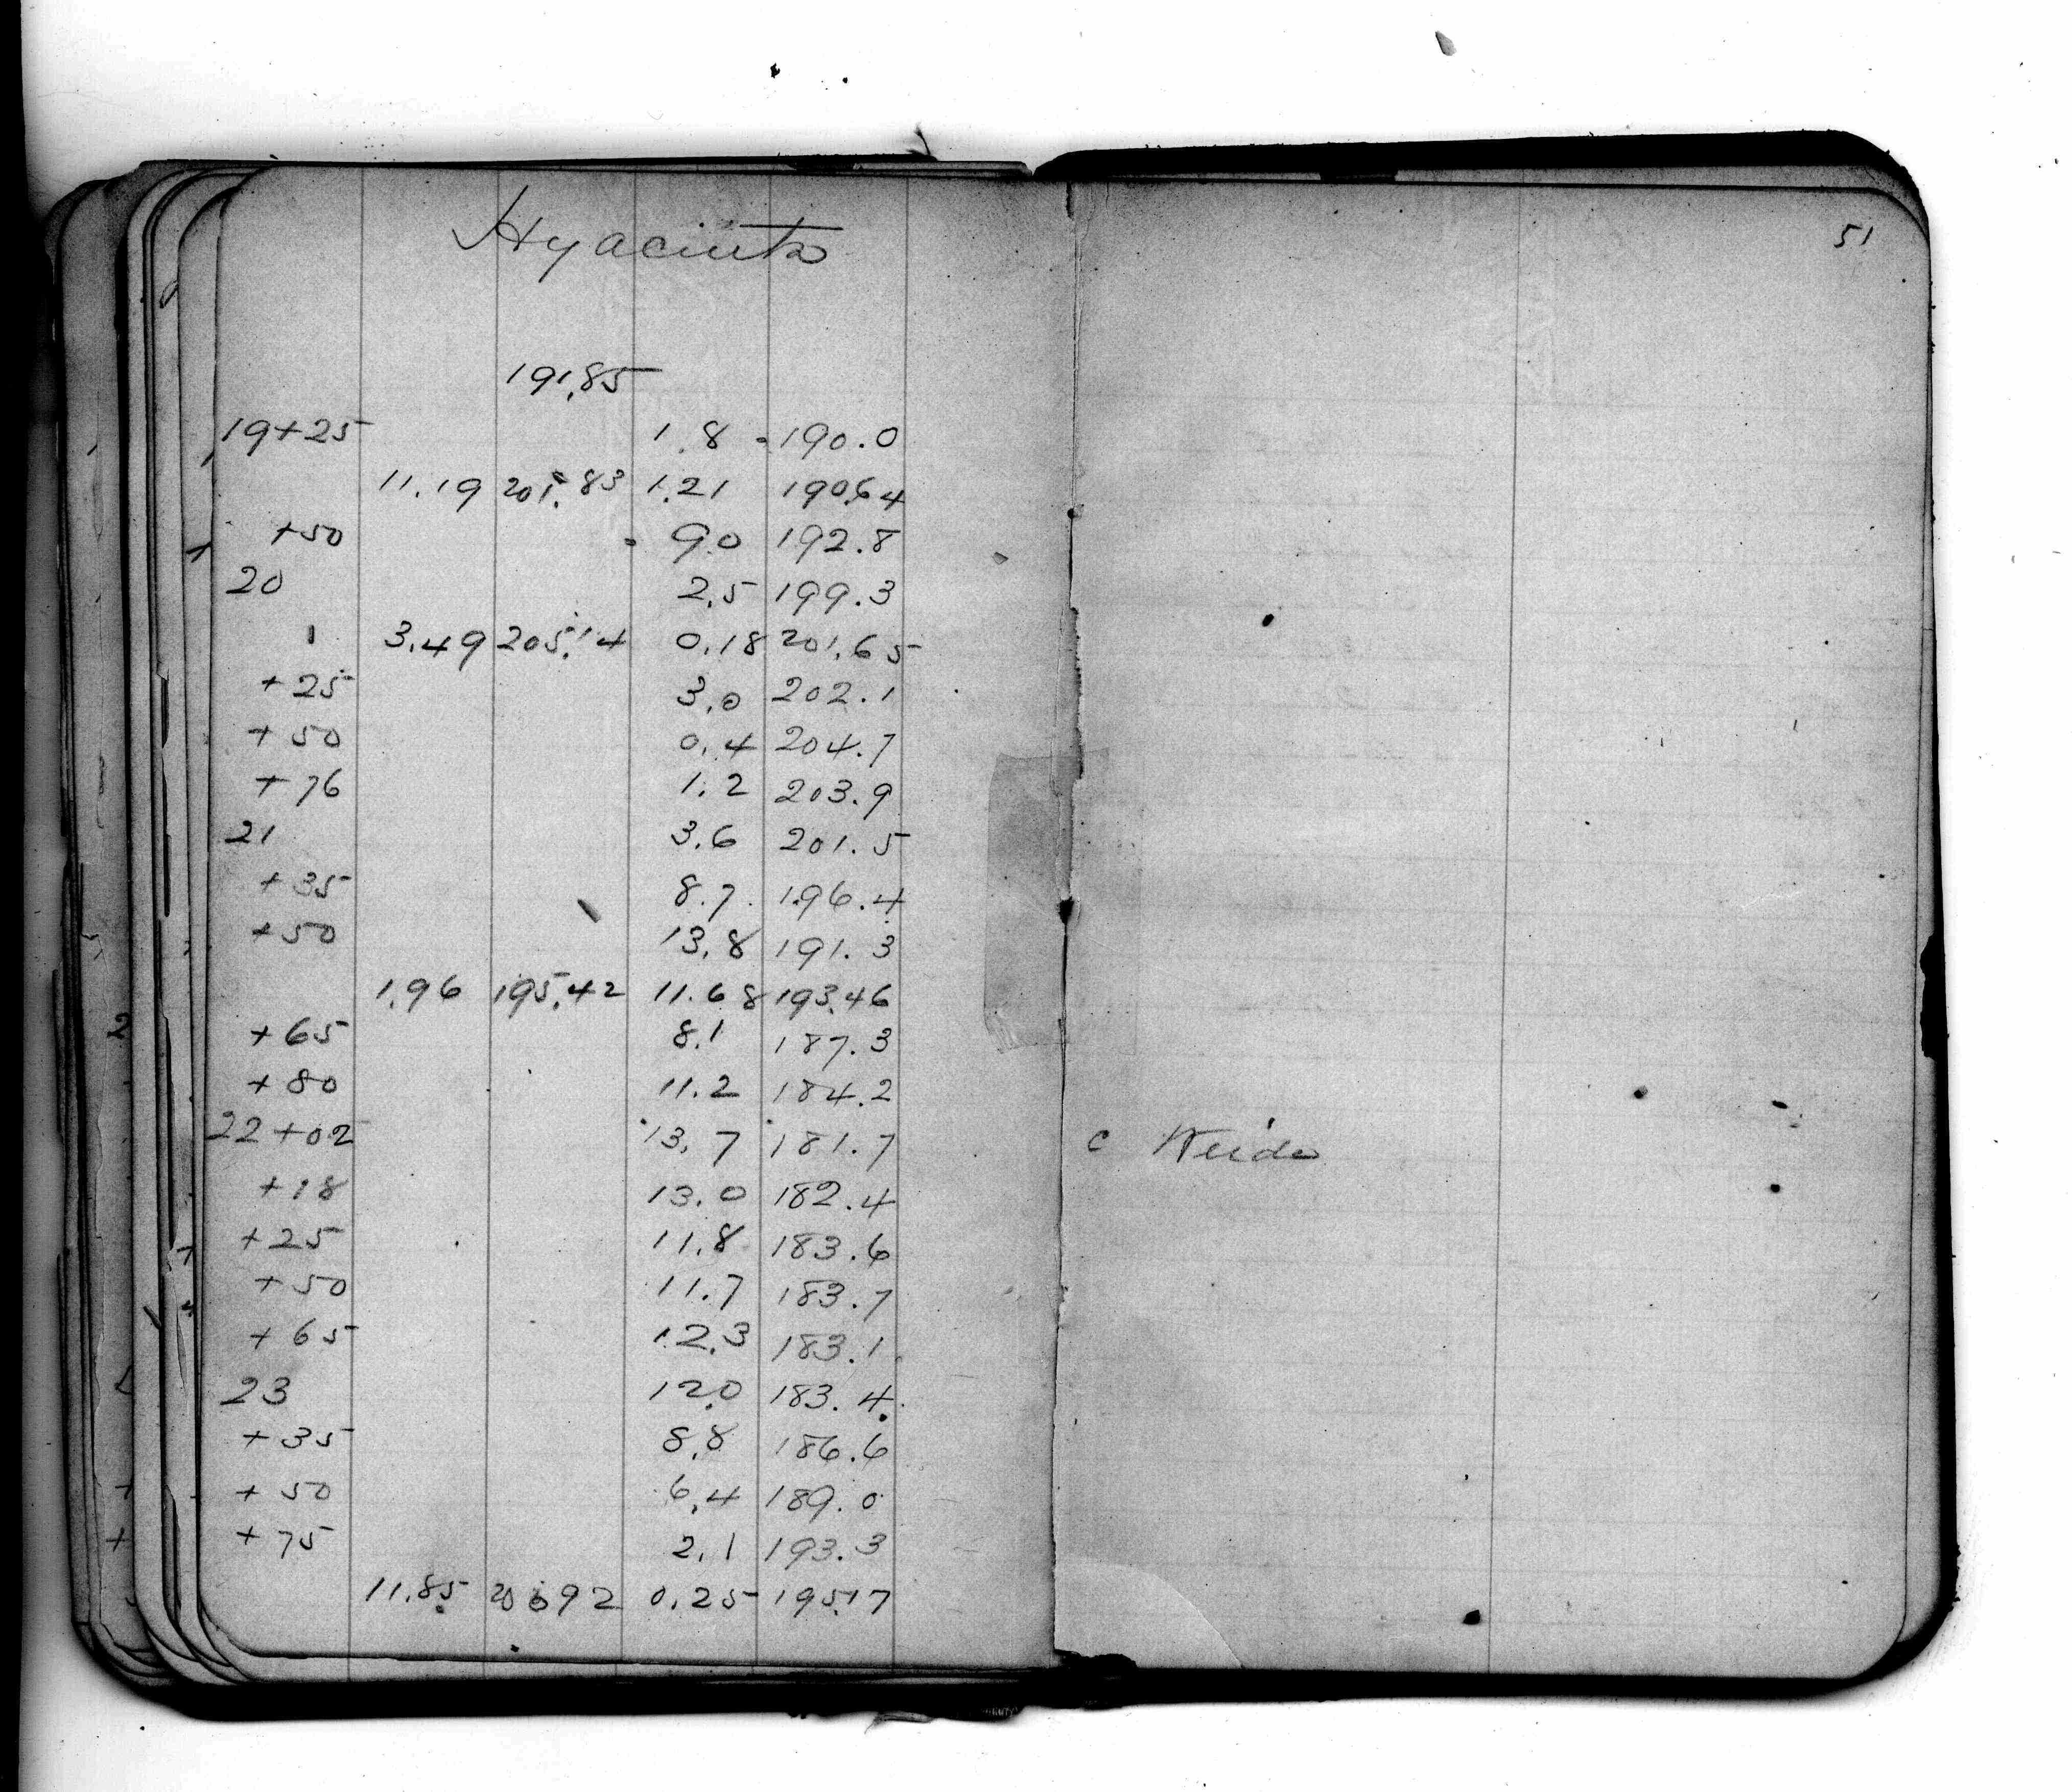 Hyacinto
51
191.85
19+25 1.8 190.0
11.19 201.83 1.21 190.64
+50 9.0 192.8
20 2.5 199.3
1 3.49 205.14 0.18 201.65
+25 3.0 202.1
+50 0.4 204.7
+76 1.2 203.9
21 3.6 201.5
+35 8.7 196.4
+50 13.8 191.3
1.96 195.42 11.68 193.46
+65 8.1 187.3
+80 11.2 184.2
22+02 13.7 181.7 c
+18 13.0 182.4
+25 11.8 183.6
+50 11.7 183.7
+65 12.3 183.1
23 12.0 183.4
+35 8.8 186.6
+50 6.4 189.0
+75 2.1 193.3
11.85 0.25 195.17